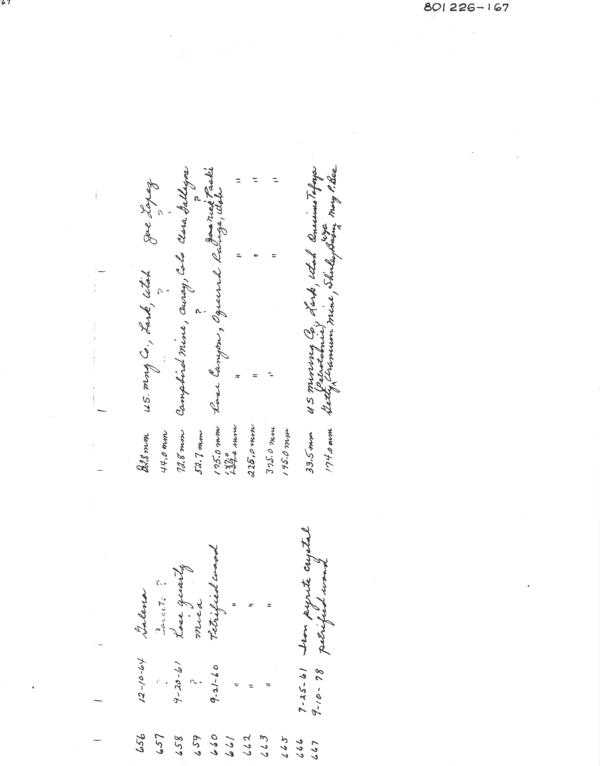 801226-167
656 12-10-64 Galena 22.8 mm U.S. Mng Co., Lark, Utah Joe Lopez
657 ? ? 44.0 mm ? ?
658 9-20-61 Rose quartz 72.8 mm Campbird Mine, Ouray, Colo Clara Gallegos
659 ? Mica 52.7 mm ? ?
660 9-21-60 Petrified wood 175.0 mm Rose Canyon, Oquirrh Range, Utah
661 " " mm " " "
662 " " 225.0 mm " " "
663 " " 375.0 mm " " "
665 195.0 mm
666 7-25-61 Iron pyrite crystal 33.5 mm U S Mining Co, Lark, Utah Tafoya
667 9-10-78 petrified wood 174.0 mm Getty (Petrotomics) Uranium Mine, Shirley Basin, Wyo Mary P. Bee